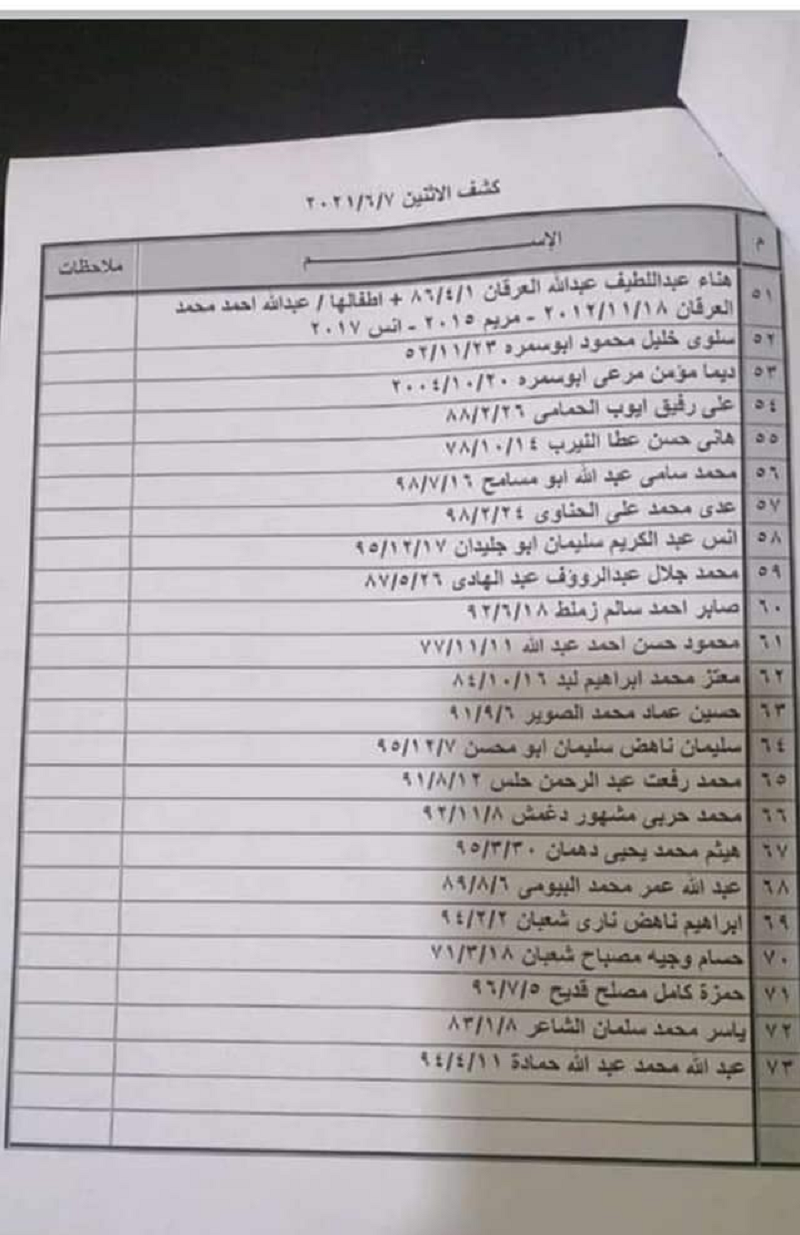 كشف الاثنين ٢٠٢١/٦/٧
م الإســـــــــــم ملاحظات
٥١ هناء عبداللطيف عبدالله العرقان ٨٦/٤/١ + اطفالها / عبدالله احمد محمد
العرقان ٢٠١٢/١١/١٨ - مريم ٢٠١٥ - انس ٢٠١٧
٥٢ سلوى خليل محمود ابوسمره ٥٢/١١/٢٣
٥٣ ديما مؤمن مرعى ابوسمره ٢٠٠٤/١٠/٢٠
٥٤ على رفيق ايوب الحمامى ٨٨/٢/٢٦
٥٥ هانى حسن عطا النيرب ٧٨/١٠/١٤
٥٦ محمد سامى عبد الله ابو مسامح ٩٨/٧/١٦
٥٧ عدى محمد على الحناوى ٩٨/٢/٢٤
٥٨ انس عبد الكريم سليمان ابو جليدان ٩٥/١٢/١٧
٥٩ محمد جلال عبدالروؤف عبد الهادى ٨٧/٥/٢٦
٦٠ صابر احمد سالم زملط ٩٢/٦/١٨
٦١ محمود حسن احمد عبد الله ٧٧/١١/١١
٦٢ معتز محمد ابراهيم لبد ٨٤/١٠/١٦
٦٣ حسين عماد محمد الصوير ٩١/٩/٦
٦٤ سليمان ناهض سليمان ابو محسن ٩٥/١٢/٧
٦٥ محمد رفعت عبد الرحمن حلس ٩١/٨/١٢
٦٦ محمد حربى مشهور دغمش ٩٢/١١/٨
٦٧ هيثم محمد يحيى دهمان ٩٥/٣/٣٠
٦٨ عبد الله عمر محمد البيومى ٨٩/٨/٦
٦٩ ابراهيم ناهض نارى شعبان ٩٤/٢/٢
٧٠ حسام وجيه مصباح شعبان ٧١/٣/١٨
٧١ حمزة كامل مصلح قديح ٩٦/٧/٥
٧٢ ياسر محمد سلمان الشاعر ٨٣/١/٨
٧٣ عبد الله محمد عبد الله حمادة ٩٤/٤/١١